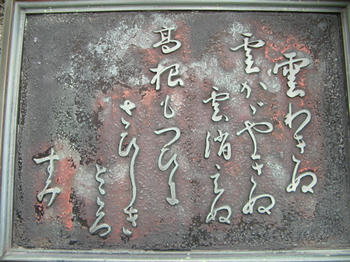 雲わきぬ
雲かゞやきぬ
雲消えぬ
高根もつひに
さひしき
ところ